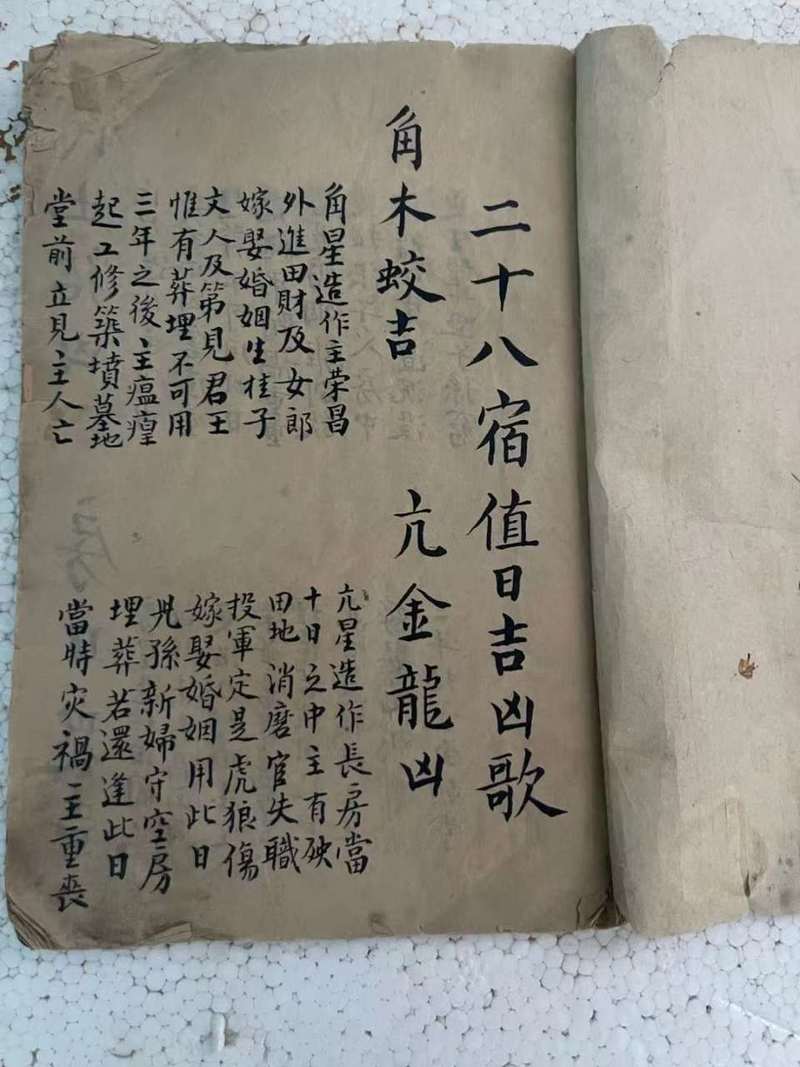 二十八宿值日吉凶歌
角木蛟吉
角星造作主荣昌
外進田財及女郎
嫁娶婚姻生桂子
文人及第見君王
惟有葬埋不可用
三年之後主瘟㾮
起工修築墳墓地
堂前立見主人亡
亢金龍凶
亢星造作長房當
十日之中主有殃
田地消磨官失職
投軍定是虎狼傷
嫁娶婚姻用此日
兇孫新婦守空房
埋葬若還逢此日
當時灾禍主重喪
房